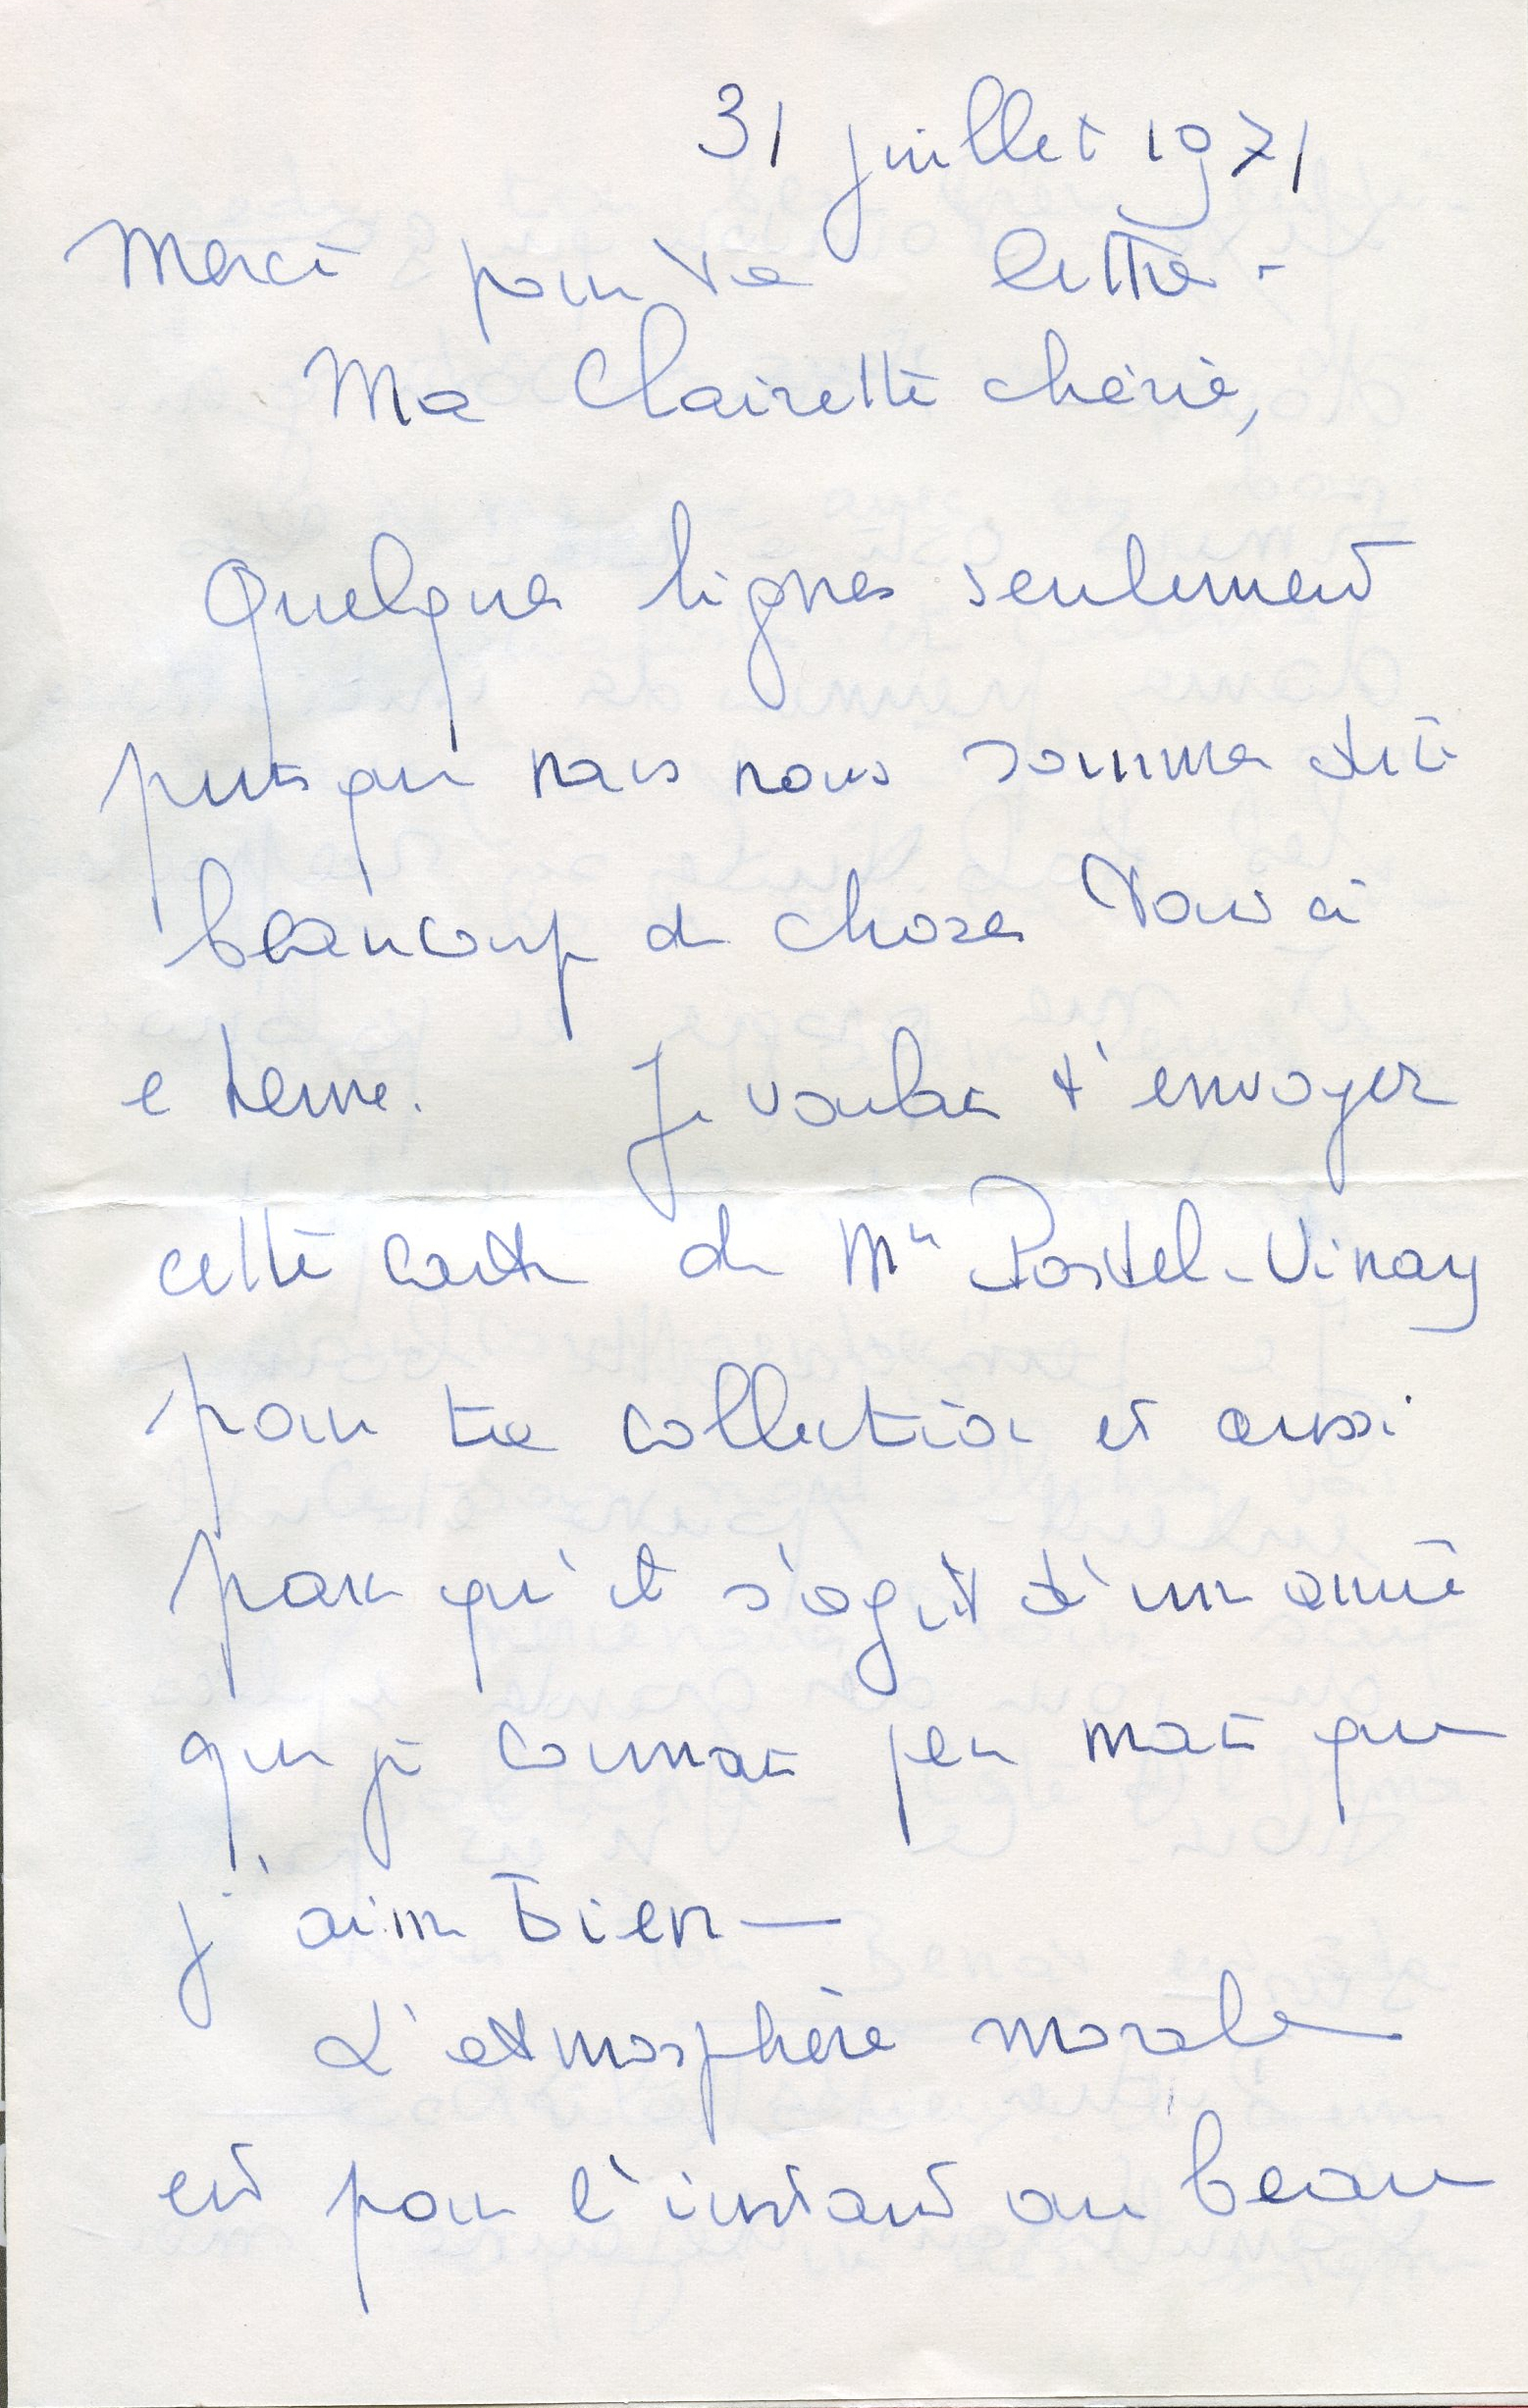 31 juillet 1971
Merci pour ta lettre -
Ma Clairette chérie,
Quelques lignes seulement
puisque nous nous sommes dit
beaucoup de choses
Je voulais t'envoyer
cette carte de Mr Postel-Vinay
pour ta collection et aussi
parce qu'il s'agit d'un ami
que je connais peu mais que
j'aime bien —
L'atmosphère morale
est pour l'instant au beau